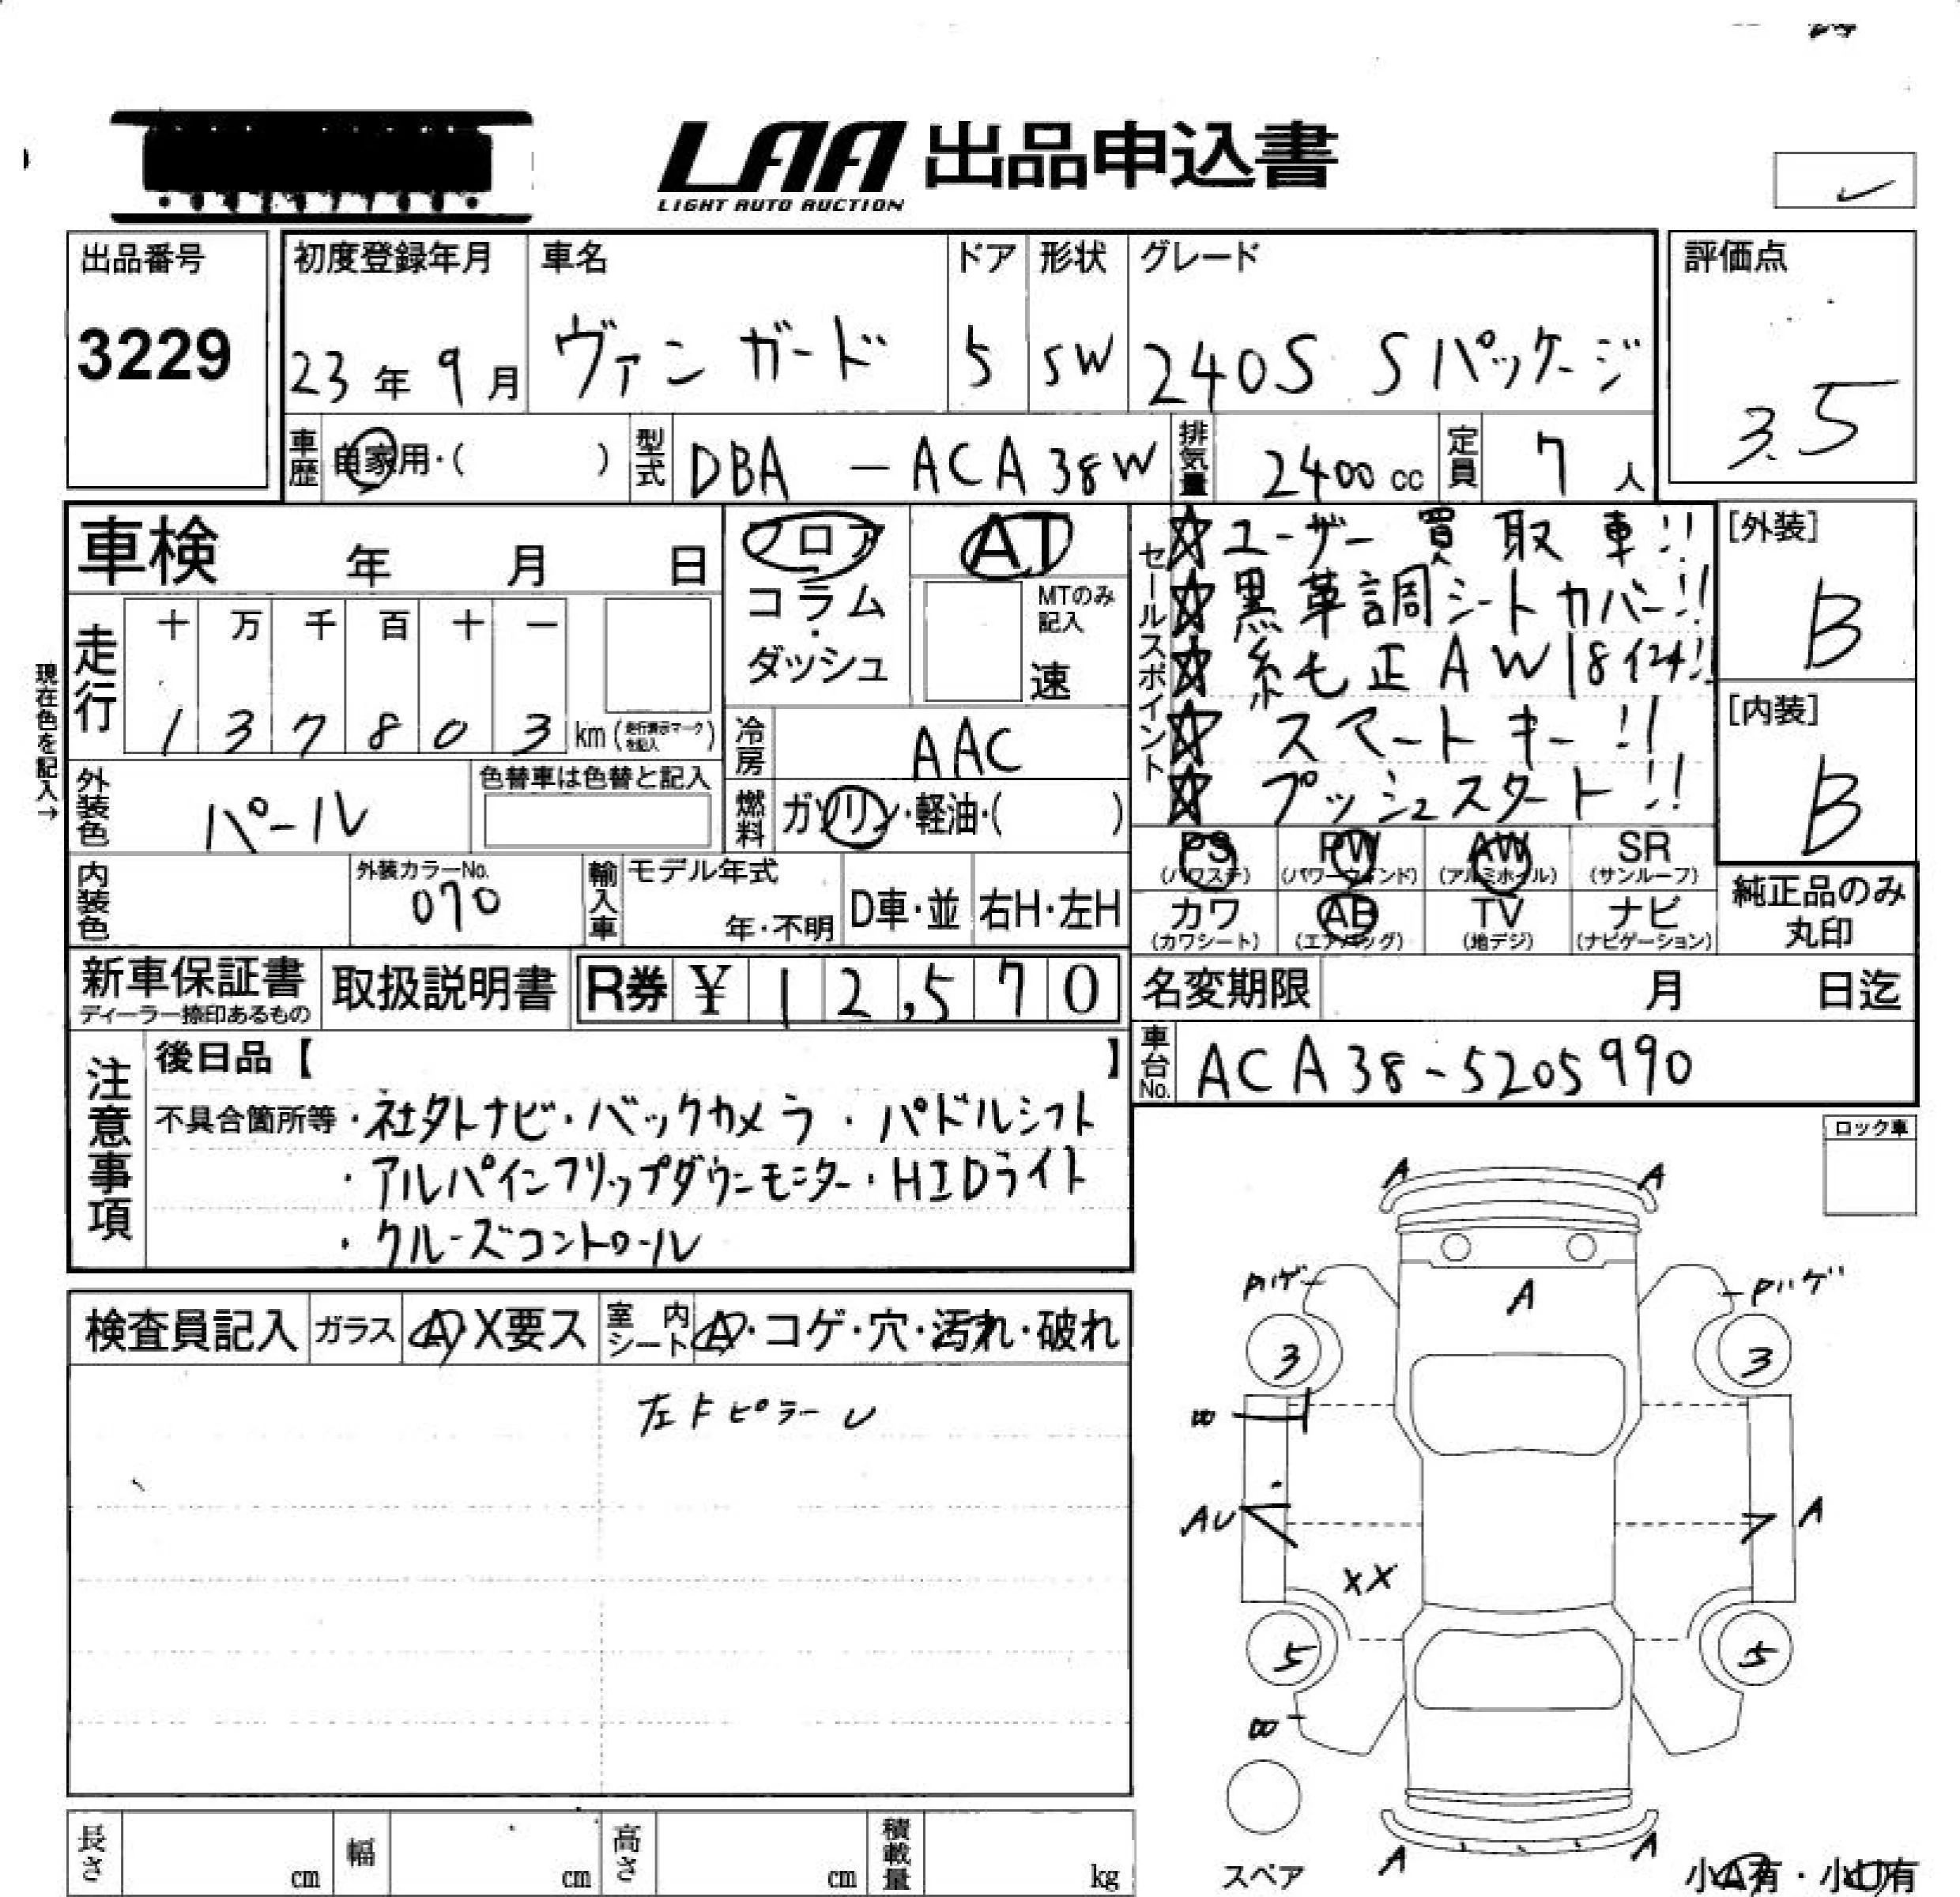 LAA 出品申込書
LIGHT AUTO AUCTION
出品番号
3229
初度登録年月
23年 9月
車名
ヴァンガード
ドア
5
形状
SW
グレード
240S Sパッケージ
評価点
3.5
車歴 自家用・( )
型式 DBA - ACA38W
排気量 2400 cc
定員 7 人
車検 年 月 日
フロア
コラム
・
ダッシュ
AT
MTのみ
記入
速
セールスポイント
☆ユーザー買取車!!
☆黒革調シートカバー!!
☆純正AW18インチ!!
☆スマートキー!!
☆プッシュスタート!!
[外装]
B
[内装]
B
現在色を記入→
走行 十 万 千 百 十 一
1 3 7 8 0 3 km (走行表示マークを記入)
冷房 AAC
燃料 ガソリン・軽油・( )
外装色 パール
色替車は色替と記入
内装色
外装カラーNo.
070
輸入車
モデル年式
年・不明
D車・並
右H・左H
PS
(パワステ)
PW
(パワーウインド)
AW
(アルミホイル)
SR
(サンルーフ)
カワ
(カワシート)
AB
(エアバッグ)
TV
(地デジ)
ナビ
(ナビゲーション)
純正品のみ
丸印
新車保証書
ディーラー捺印あるもの
取扱説明書
R券 ¥ 12,570
名変期限 月 日迄
車台No. ACA38-5205990
注意事項
後日品【 】
不具合箇所等・社外ナビ・バックカメラ・パドルシフト
・アルパインフリップダウンモニター・HIDライト
・クルーズコントロール
ロック車
検査員記入
ガラス
A X要ス
室内シート
A・コゲ・穴・汚れ・破れ
左Fピラー U
A A
Pハゲ A Pハゲ
3 3
AU A
XX
5 5
スペア
A A
小A有・小U有
長さ cm
幅 cm
高さ cm
積載量 kg